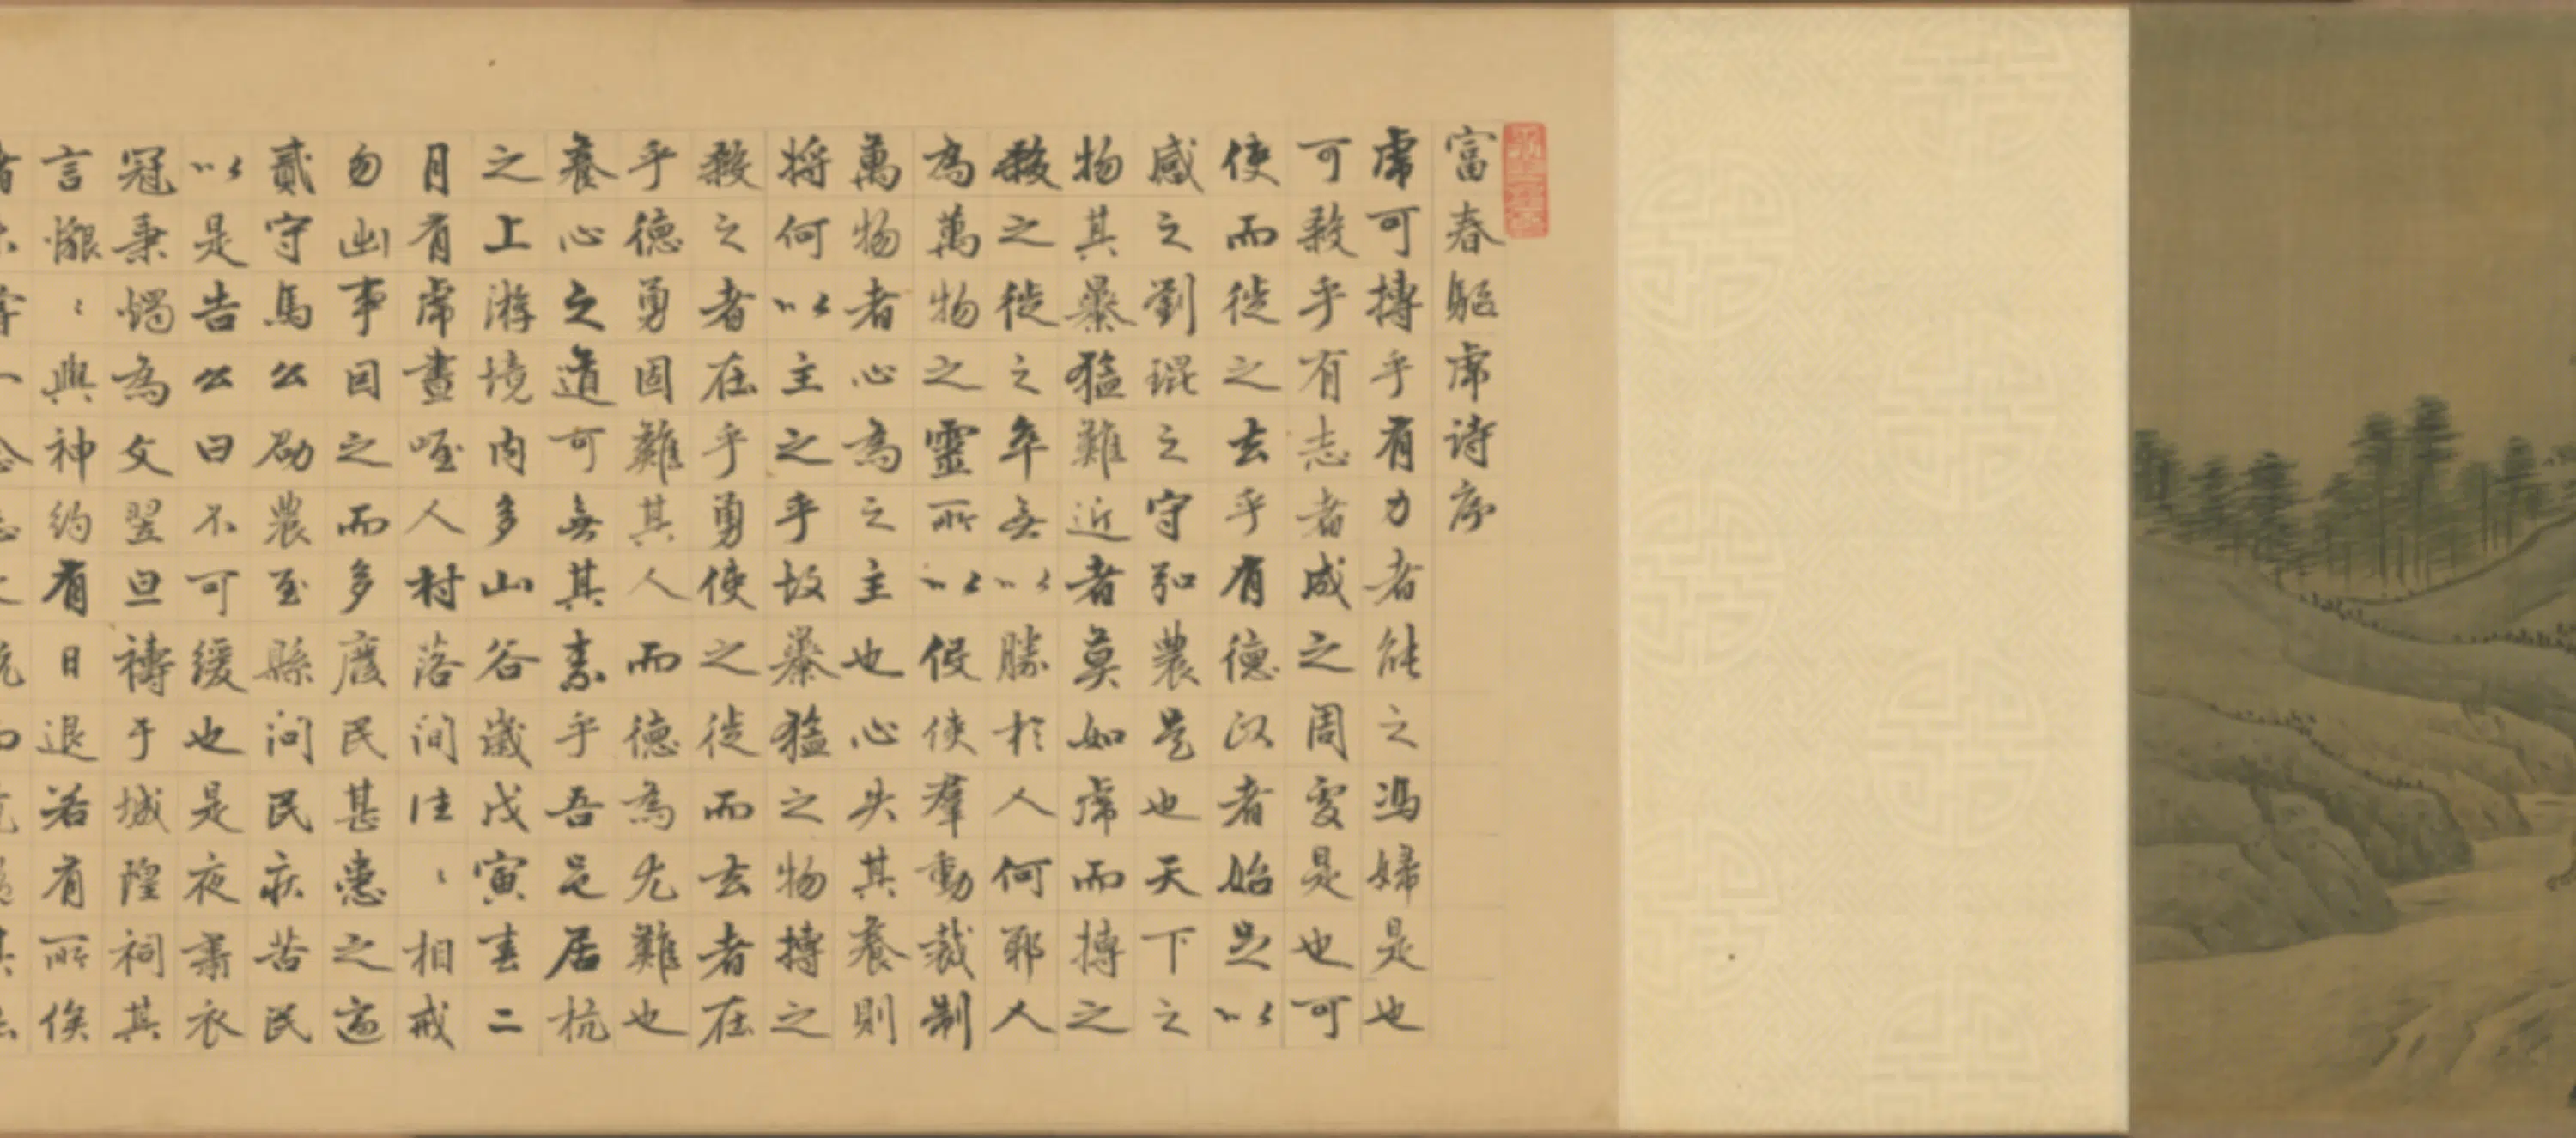 富春驅虎詩序
虎可搏乎有力者能之馮婦是也
可殺乎有志者成之周處是也可
使而徙之去乎有德政者始足以
感之劉琨之守弘農是也天下之
物其暴猛難近者莫如虎而搏之
殺之徙之卒無以勝於人何耶人
為萬物之靈所以役使群動裁制
萬物者心為之主也心失其養則
將何以主之乎故暴猛之物搏之
殺之者在乎勇使之徙而去者在
乎德勇固難其人而德為尤難也
養心之道可無其素乎吾邑居杭
之上游境內多山谷歲戊寅春二
月有虎晝咥人村落間往〻相戒
勿出事因之而多廢民甚患之適
貳守馬公劭農至縣問民疾苦民
以是告公曰不可緩也是夜肅衣
冠秉燭為文翌旦禱于城隍祠其
言懇〻與神約有日退若有所俟